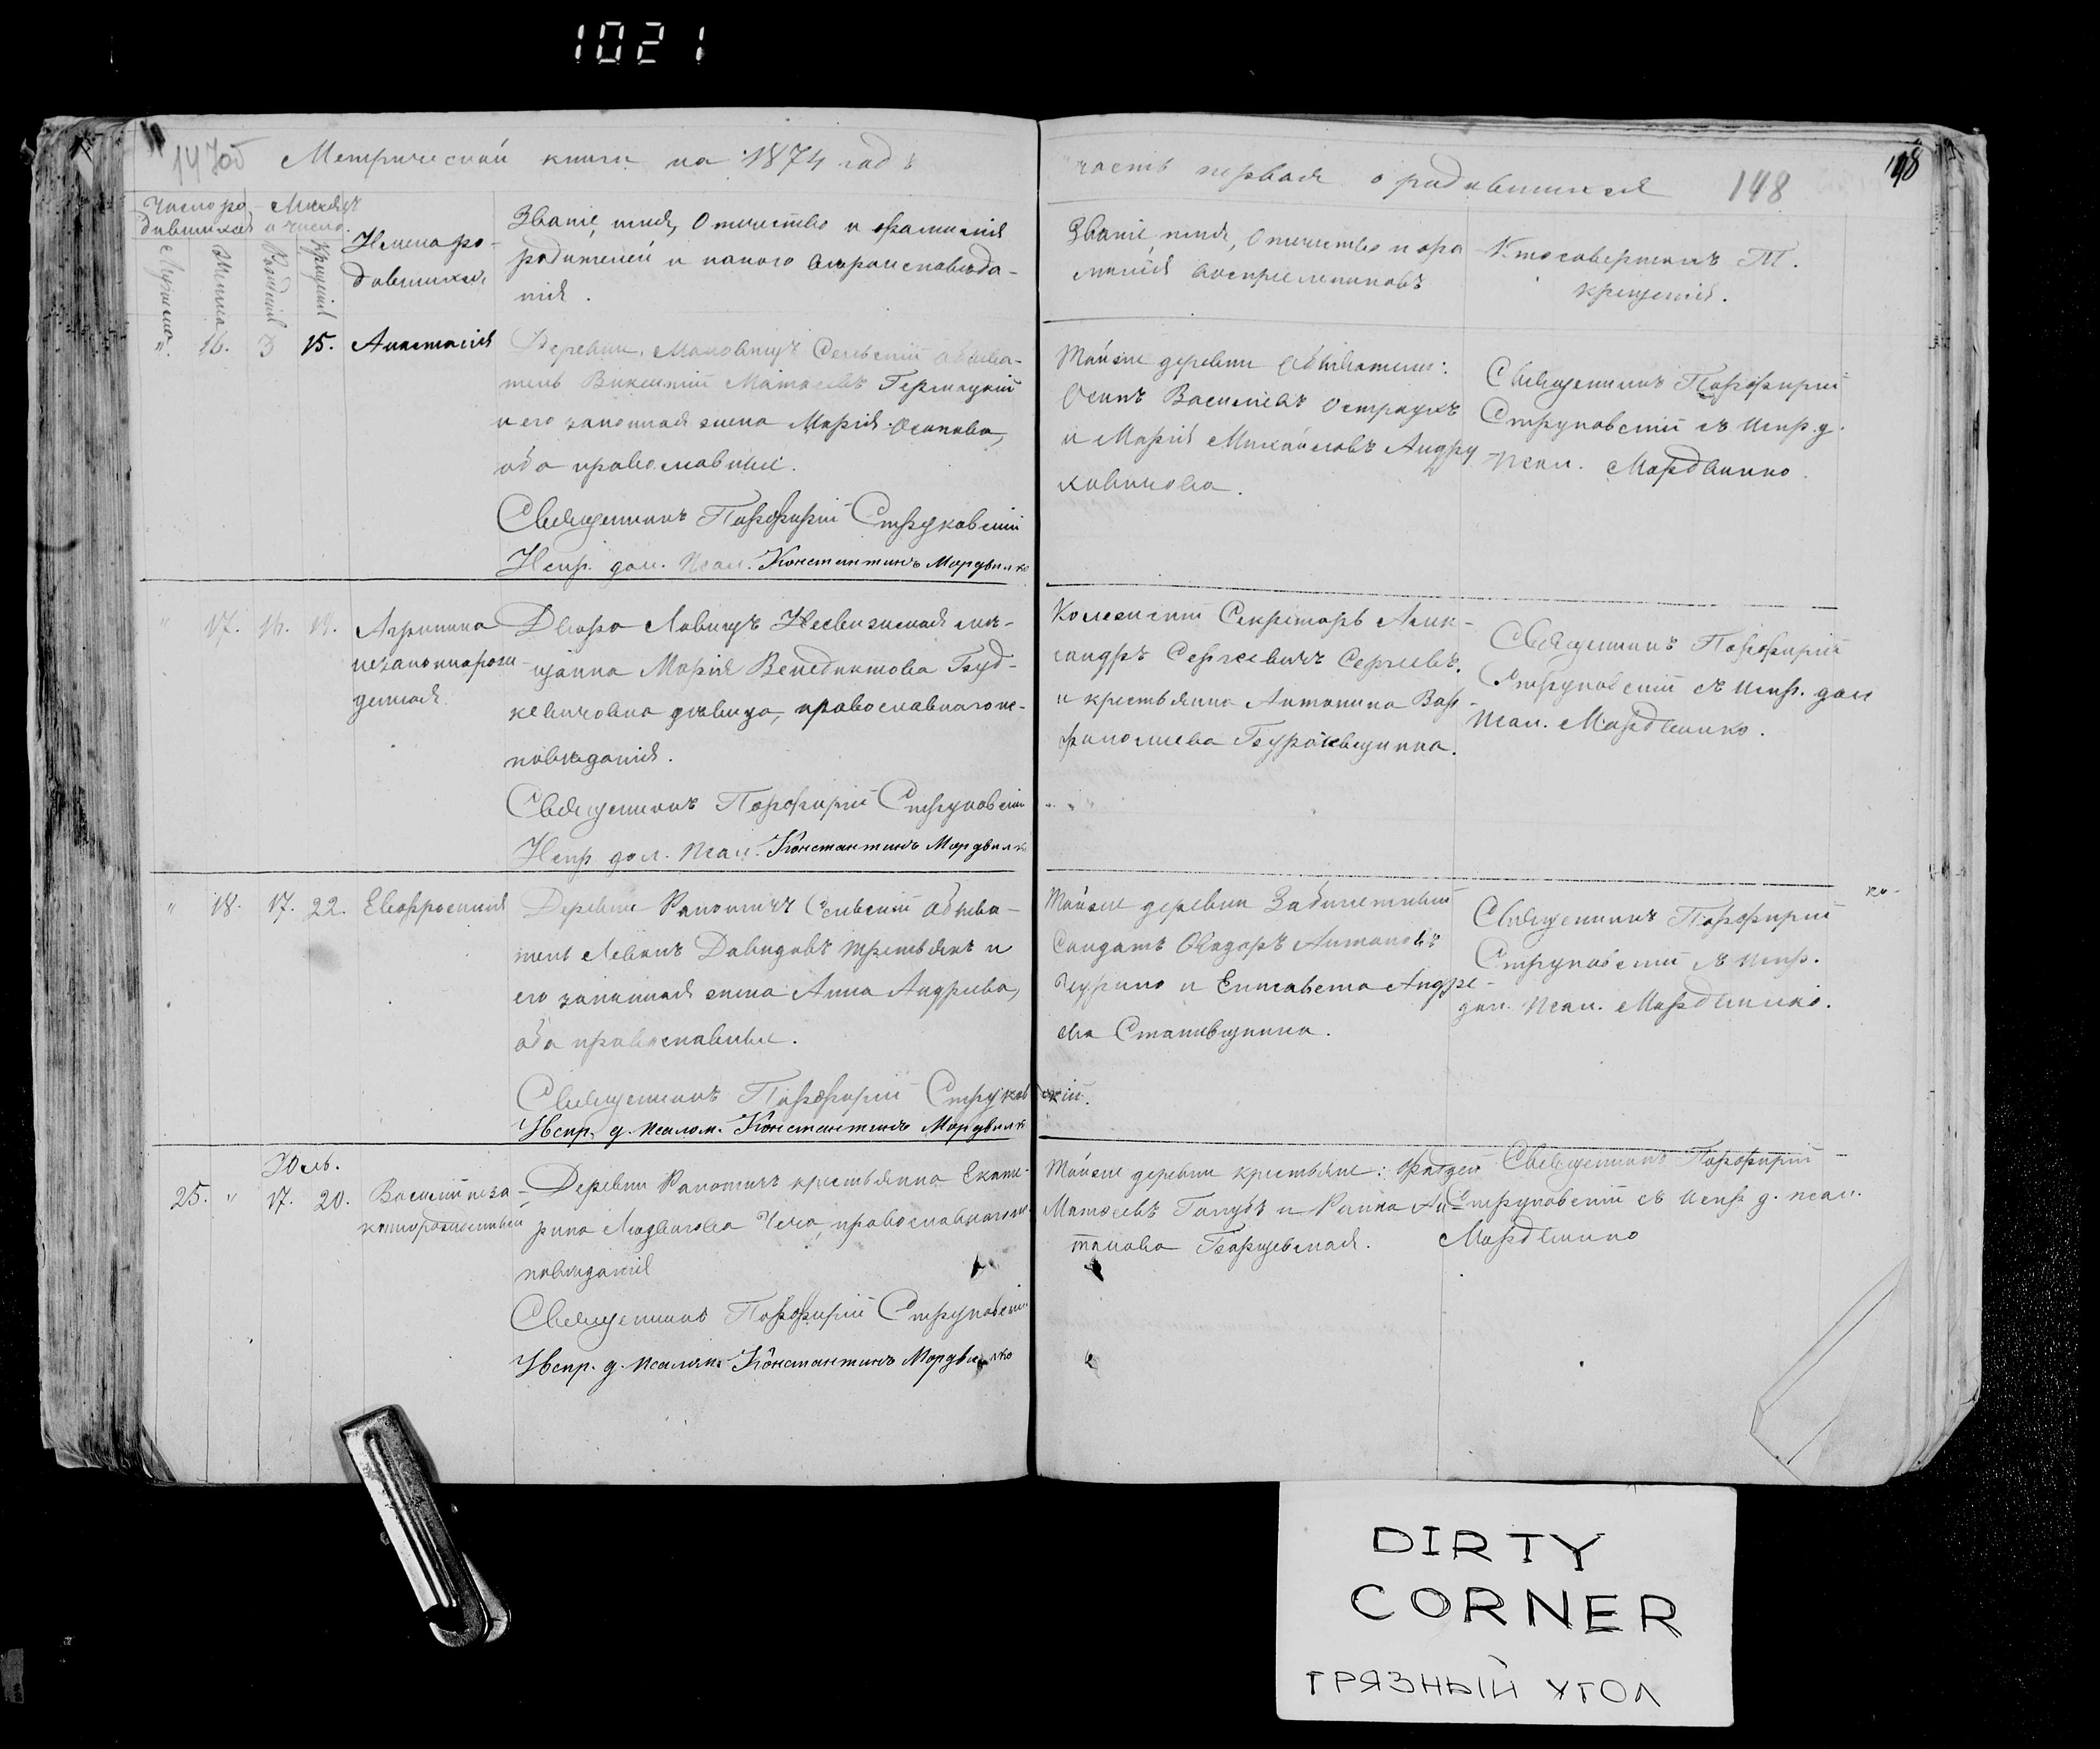 1021
Метрической книги на 1874 годъ
часть первая о родившихся 148
148
Число ро-
дившихся
Мѣсяцъ
и число.
Мужеска
Женска
Рожденія
Крещенія
Имена ро-
дившихся
Званіе, имя, Отчество и фамилія
родителей и какого вѣроисповѣда-
нія.
Званіе, имя, Отчество и фа
милія воспріемниковъ
Кто совершилъ Т.
крещенія.
". 16. 3 15. Анастасія
Деревни Сельскій обыва-
тель Викентій Матѳеевъ
и его законная жена Марія Осипова,
оба православные.
Священникъ Порфирій Струковскій
Испр. дол. Псал. Константинъ Мордвилко
Тойже деревни обыватели:
Осипъ Васильевъ
и Марія Михайловъ Андру
ховичова.
Священникъ Порфирій
Струковскій съ испр. д.
псал. Мордвилко.
" 17. 16. 19. Агрипина
незаконнорож
денная
Двора Ловищъ Несвижская мѣ-
щанка Марія Венедиктова Гуд-
кевичовна дѣвица, православнаго ис-
повѣданія.
Священникъ Порфирій Струковскій
Испр дол. Псал. Константинъ Мордвилко
Коллежскій Секретарь Алек-
сандръ Сергѣевичъ Сергѣевъ.
и крестьянка Антонина Вар-
фоломеева
Священникъ Порфирій
Струковскій съ испр. дол
псал. Мордвилко.
" 18. 17. 22. Евфросинія
Деревни Сельскій обыва-
тель Левонъ Давидовъ Третьякъ и
его законная жена Анна Андреева,
оба православные.
Священникъ Порфирій Струков
скій.
Испр. д. псалом. Константинъ Мордвилко
Тойже деревни
Солдатъ Ѳедоръ Антоновъ
и Елисавета Андре-
ева
Священникъ Порфирій
Струковскій съ испр.
дол. псал. Мордвилко.
Юль.
25. " 17. 20. Василій неза-
конорожденный
Деревни крестьянка Екате-
рина православнаго ис-
повѣданія
Священникъ Порфирій Струковскій
Испр. д. псалом. Константинъ Мордвилко
Тойже деревни крестьяне: Фаддей
Матѳеевъ и Ан-
тонова
Священникъ Порфирій
Струковскій съ испр. д. псал.
Мордвилко
DIRTY
CORNER
ГРЯЗНЫЙ УГОЛ